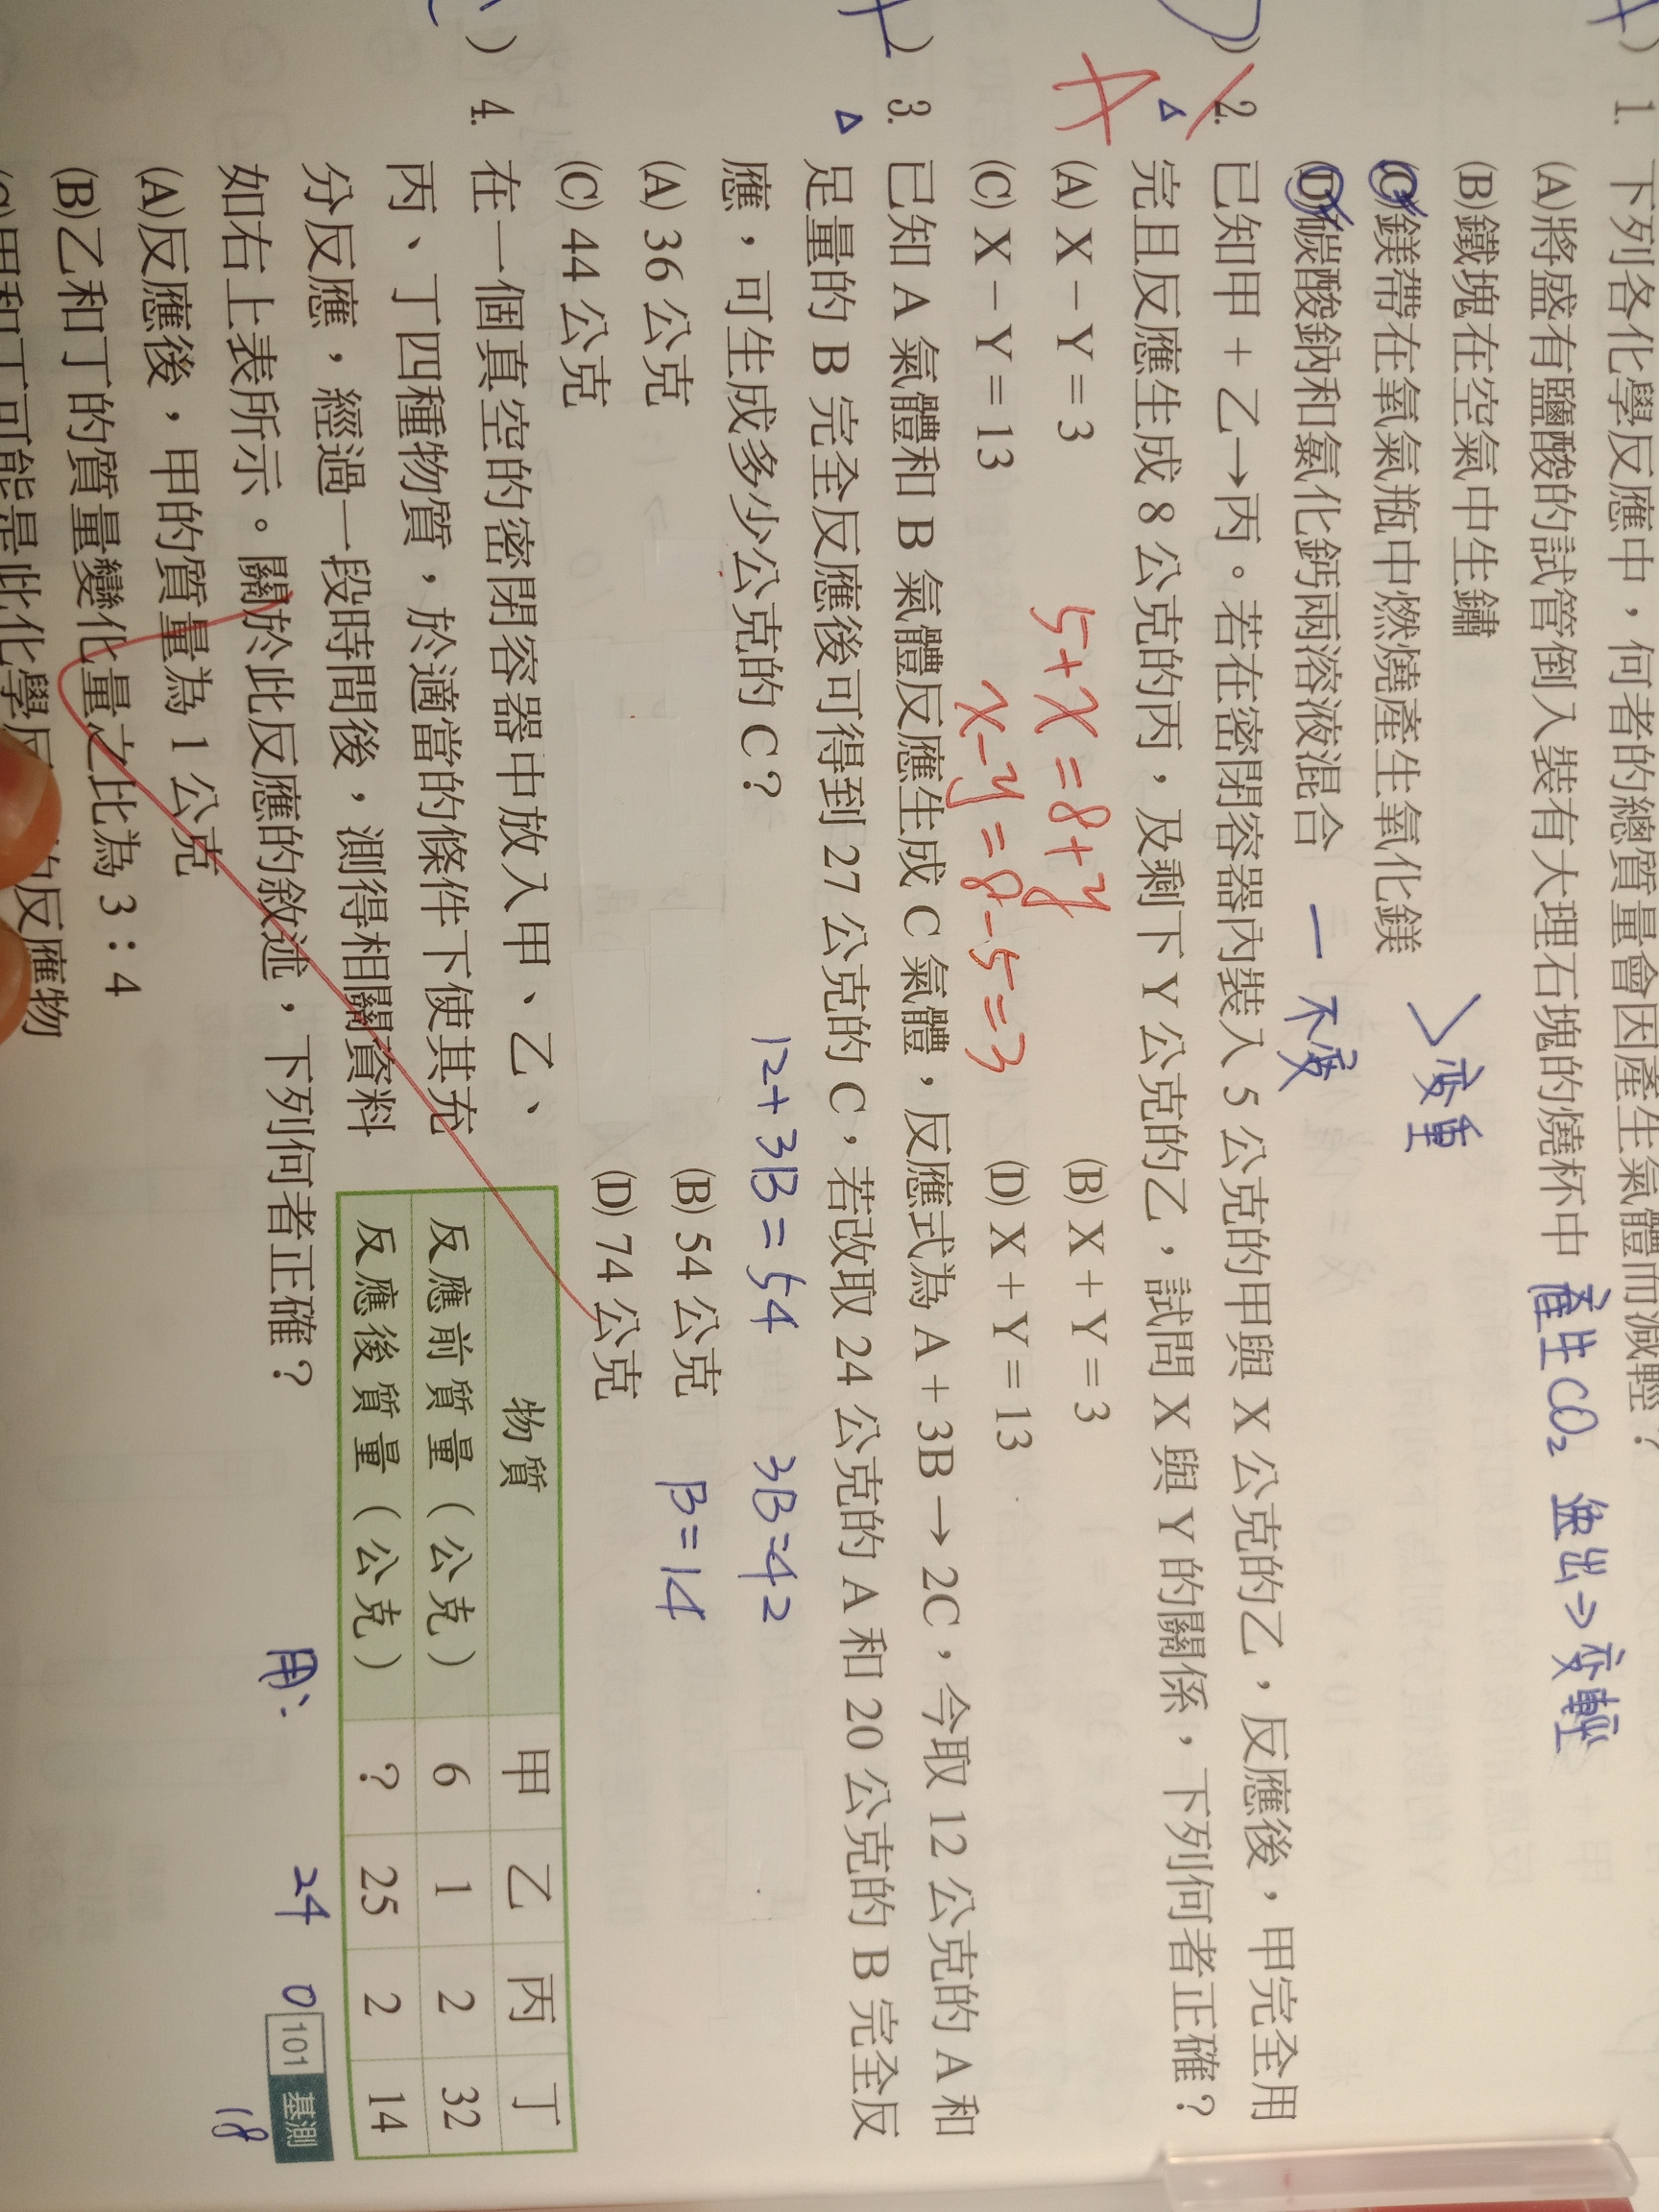 1. 下列各化學反應中，何者的總質量會因產生氣體而減輕？
(A)將盛有鹽酸的試管倒入裝有大理石塊的燒杯中 產生CO₂ 無出⇒變輕
(B)鐵塊在空氣中生鏽
(C)鎂帶在氧氣瓶中燃燒產生氧化鎂 > 變重
(D)碳酸鈉和氯化鈣兩溶液混合 — 不變
2. 已知甲＋乙→丙。若在密閉容器內裝入 5 公克的甲與 X 公克的乙，反應後，甲完全用
完且反應生成 8 公克的丙，及剩下 Y 公克的乙，試問 X 與 Y 的關係，下列何者正確？
A
(A) X－Y＝3 5+x=8+y (B) X＋Y＝3
(C) X－Y＝13 x-y=8-5=3 (D) X＋Y＝13
3. 已知 A 氣體和 B 氣體反應生成 C 氣體，反應式為 A＋3B→2C，今取 12 公克的 A 和
足量的 B 完全反應後可得到 27 公克的 C，若改取 24 公克的 A 和 20 公克的 B 完全反
應，可生成多少公克的 C？ 12+3B=54 3B=42
(A) 36 公克 (B) 54 公克 B=14
(C) 44 公克 (D) 74 公克
4. 在一個真空的密閉容器中放入甲、乙、
丙、丁四種物質，於適當的條件下使其充
分反應，經過一段時間後，測得相關資料
如右上表所示。關於此反應的敘述，下列何者正確？
物質 甲 乙 丙 丁
反應前質量（公克） 6 1 2 32
反應後質量（公克） ? 25 2 14
用: 24 0 18
101 基測
(A)反應後，甲的質量為 1 公克
(B)乙和丁的質量變化量之比為 3：4
(C)甲和丁可能是此化學反 的反應物